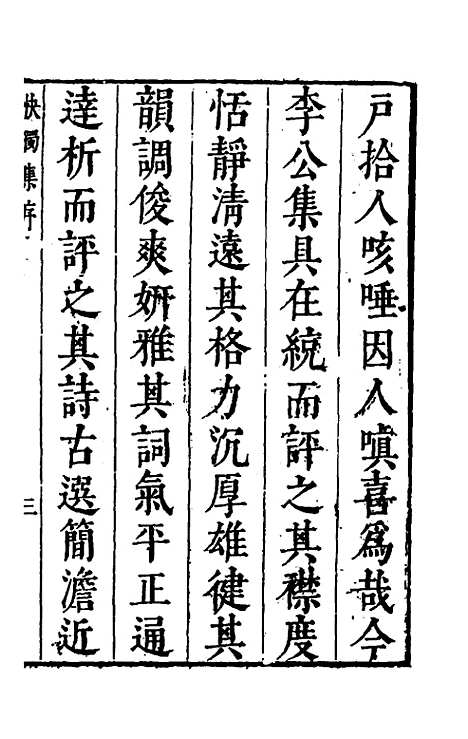 戸拾人咳唾因人嗔喜爲哉今
李公集具在統而評之其襟度
恬靜淸遠其格力沉厚雄健其
韻調俊爽姸雅其詞氣平正通
達析而評之其詩古選簡澹近
快獨集序
三